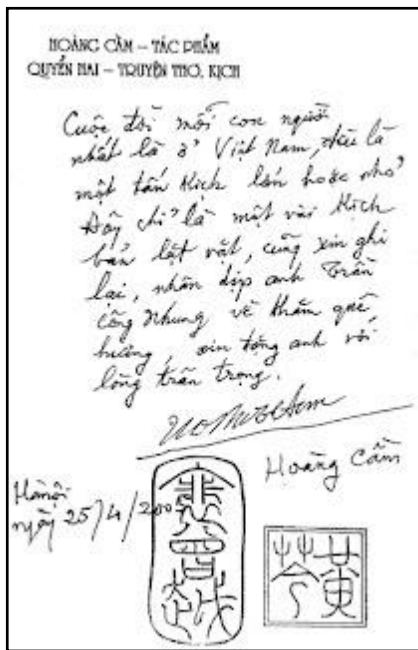 HOÀNG CẦM – TÁC PHẨM
QUYỂN HAI – TRUYỆN THƠ, KỊCH
Cuộc đời mỗi con người
nhất là ở Việt Nam, đều là
một tấn kịch lớn hoặc nhỏ
Đây chỉ là một vài kịch
bản lặt vặt, cũng xin ghi
lại, nhân dịp anh Trần
Công Nhung về thăm quê
hương, xin tặng anh với
lòng trân trọng.
Hoàng Cầm
Hà nội
ngày 25/4/200
黄
芩